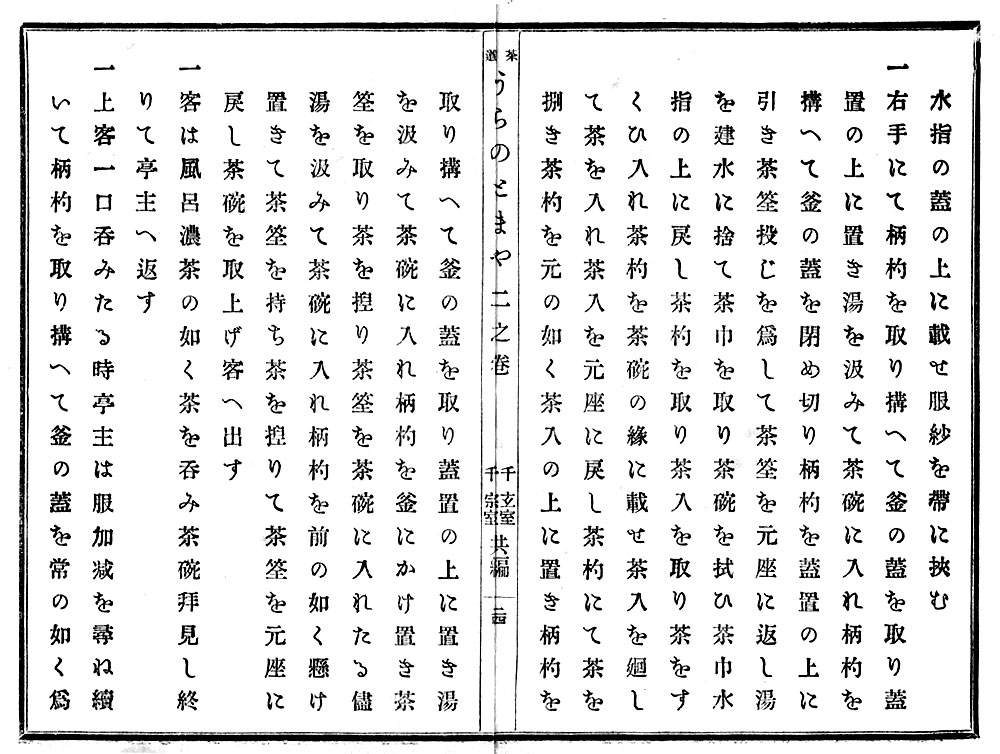 水指の蓋の上に載せ服紗を帶に挾む
一右手にて柄杓を取り搆へて釜の蓋を取り蓋
置の上に置き湯を汲みて茶碗に入れ柄杓を
搆へて釜の蓋を閉め切り柄杓を蓋置の上に
引き茶筌投じを爲して茶筌を元座に返し湯
を建水に捨て茶巾を取り茶碗を拭ひ茶巾水
指の上に戻し茶杓を取り茶入を取り茶をす
くひ入れ茶杓を茶碗の緣に載せ茶入を廻し
て茶を入れ茶入を元座に戻し茶杓にて茶を
捌き茶杓を元の如く茶入の上に置き柄杓を
茶道
うらのとまや二之卷
千玄室
千宗室
共編
二四
取り搆へて釜の蓋を取り蓋置の上に置き湯
を汲みて茶碗に入れ柄杓を釜にかけ置き茶
筌を取り茶を揑り茶筌を茶碗に入れたる儘
湯を汲みて茶碗に入れ柄杓を前の如く懸け
置きて茶筌を持ち茶を揑りて茶筌を元座に
戻し茶碗を取上げ客へ出す
一客は風呂濃茶の如く茶を呑み茶碗拜見し終
りて亭主へ返す
一上客一口呑みたる時亭主は服加减を尋ね續
いて柄杓を取り搆へて釜の蓋を常の如く爲